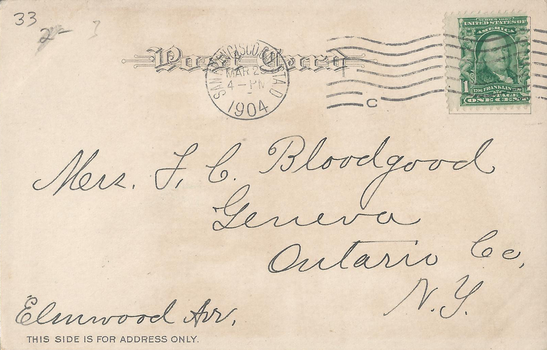 33
Post Card
SAN FRANCISCO
STA. D
MAR 2
4 - PM
1904
C
SERIES 1902
UNITED STATES OF
AMERICA
FRANKLIN
1
ONE CENT
Mrs. F. C. Bloodgood
Geneva
Ontario Co,
N.Y.
Elmwood Avr.
THIS SIDE IS FOR ADDRESS ONLY.